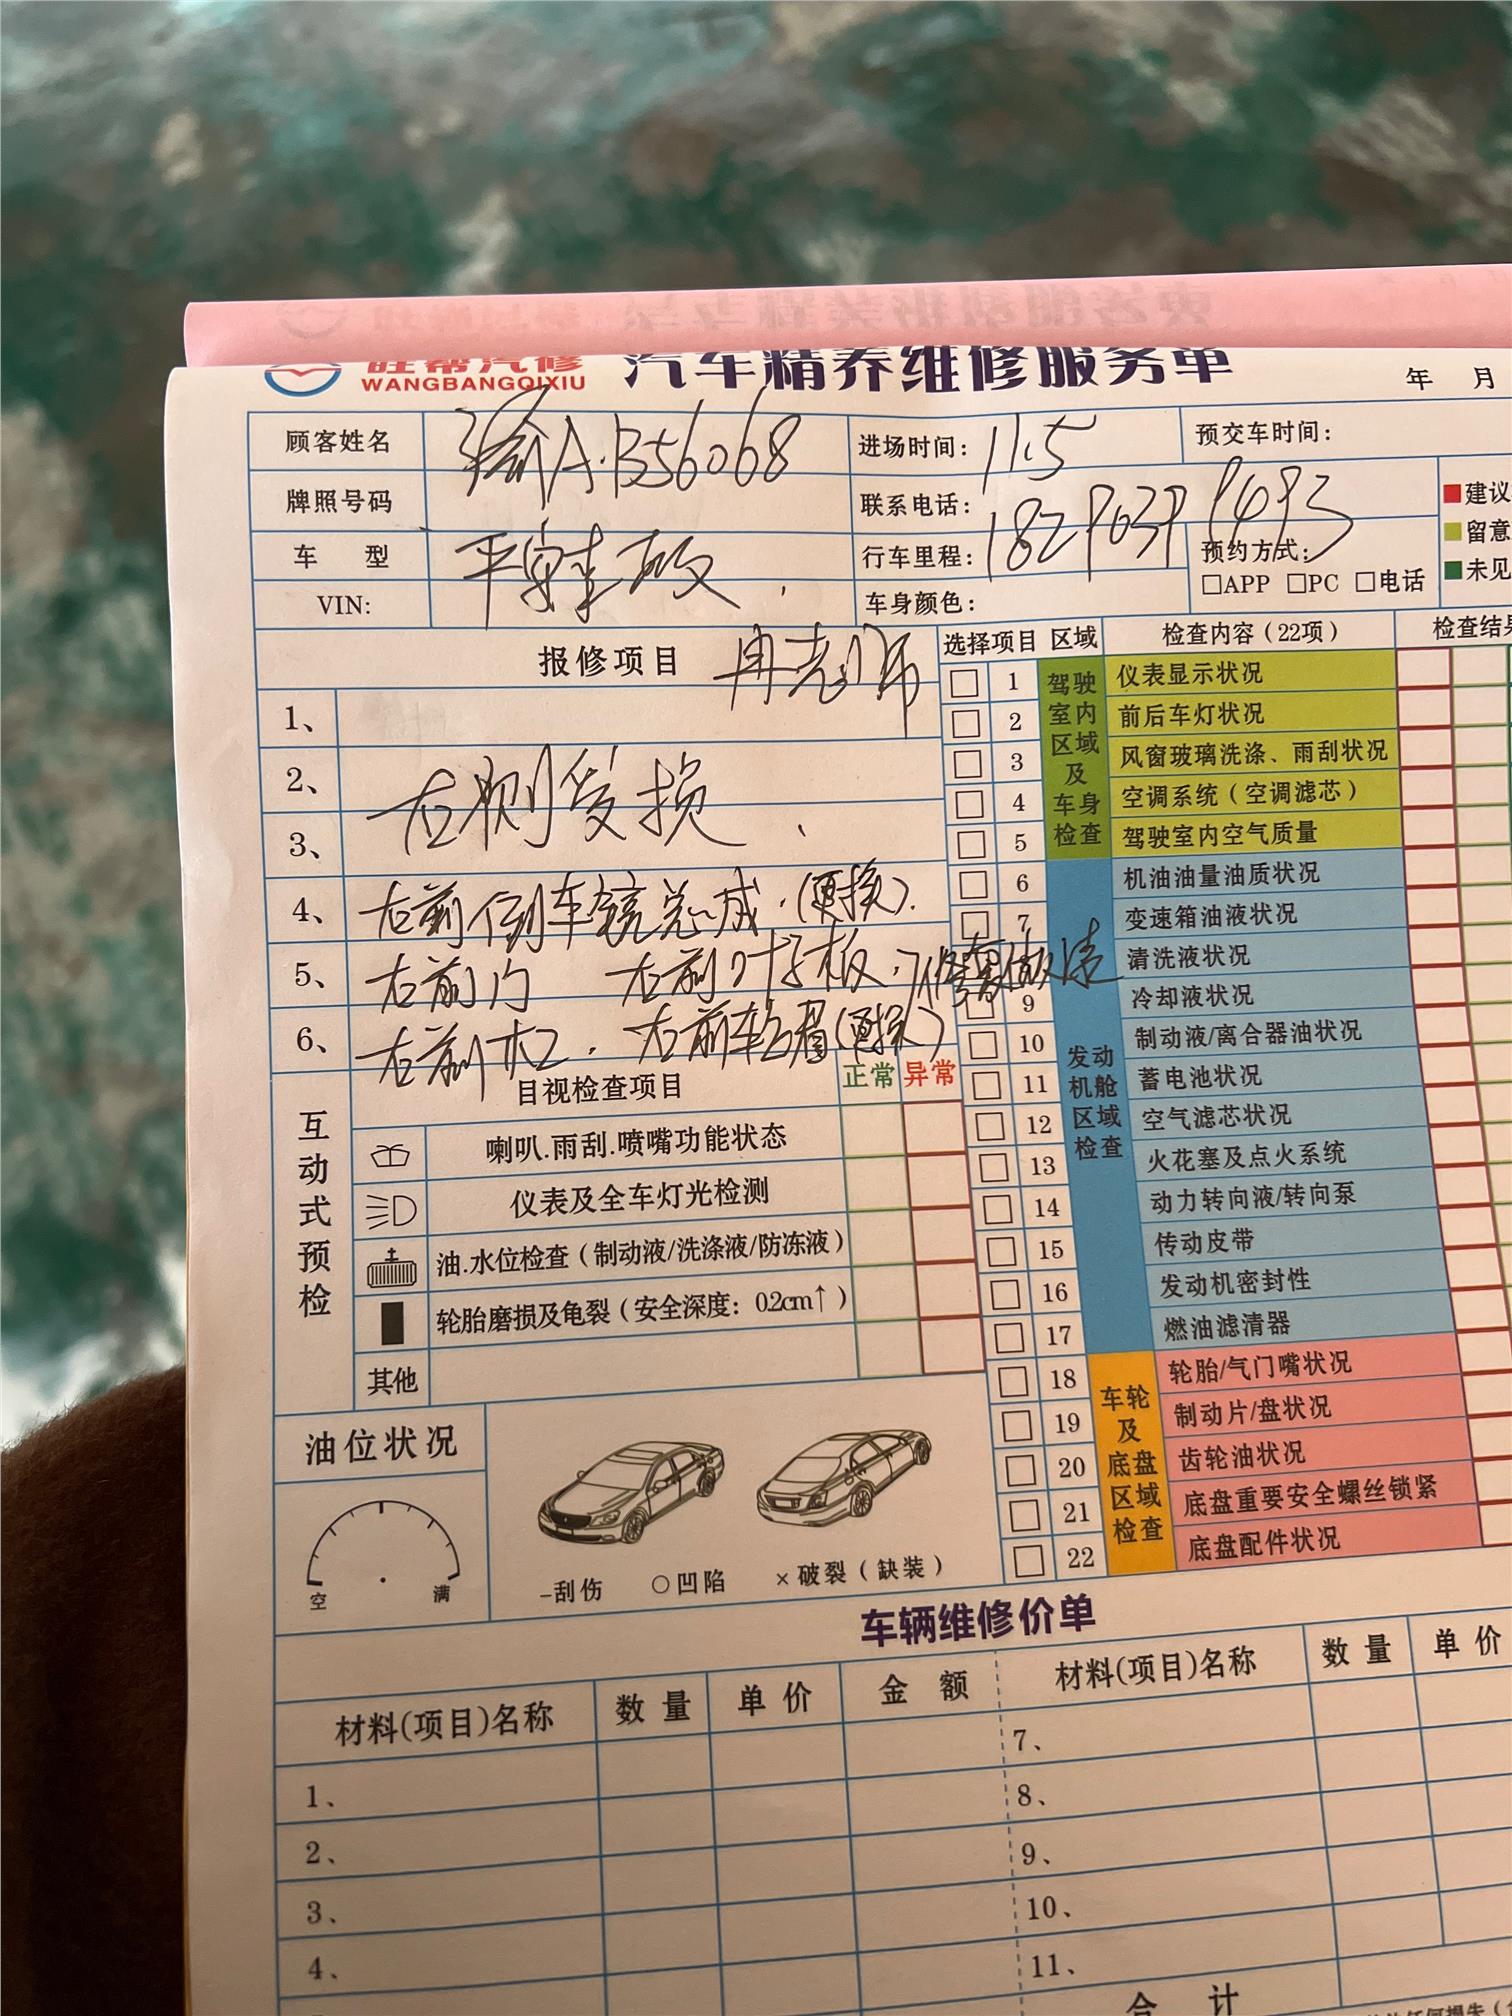 旺帮汽修 汽车精养维修服务单
WANGBANGQIXIU
年 月
顾客姓名 渝A·B56068 进场时间: 11.5 预交车时间:
牌照号码 联系电话: 建议
车 型 平安车 行车里程: 预约方式: 留意
VIN: 车身颜色: □APP □PC □电话 未见
报修项目 冉老师 选择项目 区域 检查内容(22项) 检查结果
1、
2、 右侧受损
3、
4、 右前倒车镜总成.(更换).
5、 右前门 右前叶子板.
6、 右前 . 右前轮眉(更换)
驾驶室内区域及车身检查
1 仪表显示状况
2 前后车灯状况
3 风窗玻璃洗涤、雨刮状况
4 空调系统(空调滤芯)
5 驾驶室内空气质量
发动机舱区域检查
6 机油油量油质状况
7 变速箱油液状况
清洗液状况
9 冷却液状况
10 制动液/离合器油状况
11 蓄电池状况
12 空气滤芯状况
13 火花塞及点火系统
14 动力转向液/转向泵
15 传动皮带
16 发动机密封性
17 燃油滤清器
车轮及底盘区域检查
18 轮胎/气门嘴状况
19 制动片/盘状况
20 齿轮油状况
21 底盘重要安全螺丝锁紧
22 底盘配件状况
互动式预检
目视检查项目 正常 异常
喇叭.雨刮.喷嘴功能状态
仪表及全车灯光检测
油.水位检查(制动液/洗涤液/防冻液)
轮胎磨损及龟裂(安全深度: 0.2cm↑)
其他
油位状况
空 满
–刮伤 ○凹陷 ×破裂(缺装)
车辆维修价单
材料(项目)名称 数量 单价 金额 材料(项目)名称 数量 单价
1、 7、
2、 8、
3、 9、
4、 10、
11、
合 计